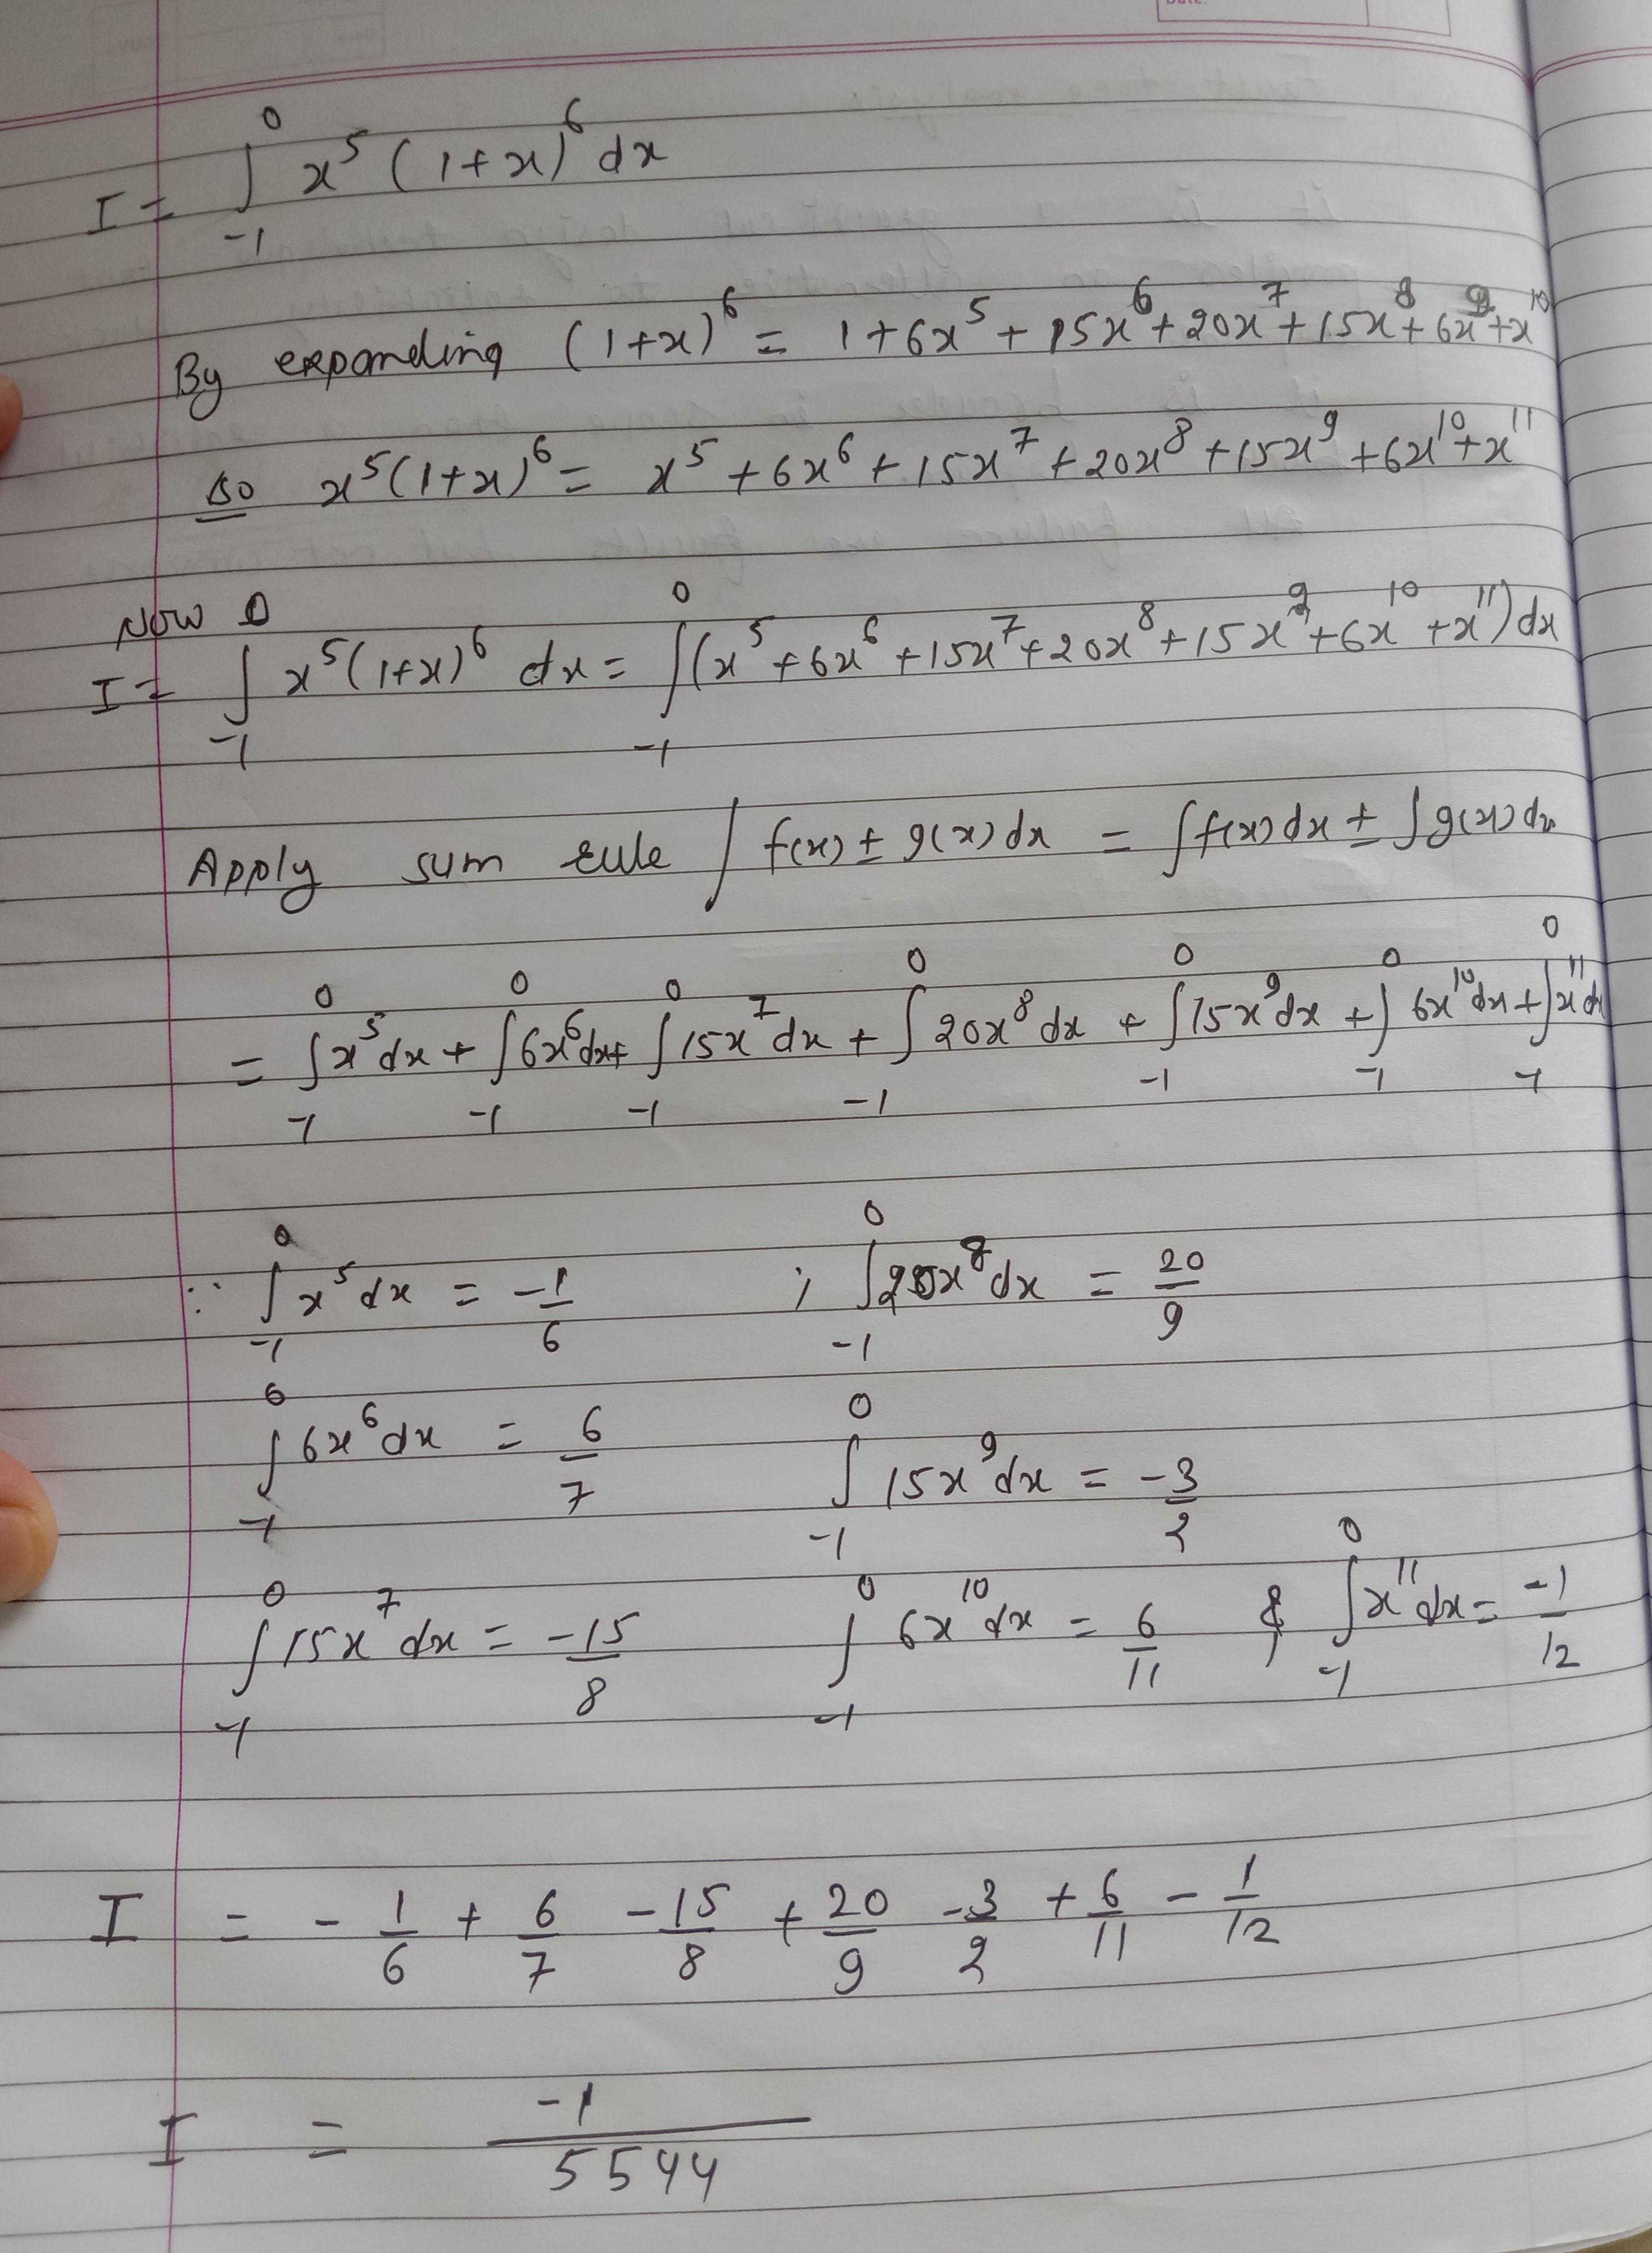 Date:
I = ∫₋₁⁰ x⁵ (1+x)⁶ dx
By expanding (1+x)⁶ = 1+6x⁵ + 15x⁶ + 20x⁷ + 15x⁸ + 6x⁹ + x¹⁰
so x⁵(1+x)⁶ = x⁵ + 6x⁶ + 15x⁷ + 20x⁸ + 15x⁹ + 6x¹⁰ + x¹¹
Now
I = ∫₋₁⁰ x⁵(1+x)⁶ dx = ∫₋₁⁰ (x⁵ + 6x⁶ + 15x⁷ + 20x⁸ + 15x⁹ + 6x¹⁰ + x¹¹) dx
Apply sum rule ∫ f(x) ± g(x) dx = ∫ f(x) dx ± ∫ g(x) dx
= ∫₋₁⁰ x⁵ dx + ∫₋₁⁰ 6x⁶ dx + ∫₋₁⁰ 15x⁷ dx + ∫₋₁⁰ 20x⁸ dx + ∫₋₁⁰ 15x⁹ dx + ∫₋₁⁰ 6x¹⁰ dx + ∫₋₁⁰ x¹¹ dx
∵ ∫₋₁⁰ x⁵ dx = -1/6 ; ∫₋₁⁰ 20x⁸ dx = 20/9
∫₋₁⁰ 6x⁶ dx = 6/7 ∫₋₁⁰ 15x⁹ dx = -3/2
∫₋₁⁰ 15x⁷ dx = -15/8 ∫₋₁⁰ 6x¹⁰ dx = 6/11 & ∫₋₁⁰ x¹¹ dx = -1/12
I = - 1/6 + 6/7 - 15/8 + 20/9 - 3/2 + 6/11 - 1/12
I = -1/5544